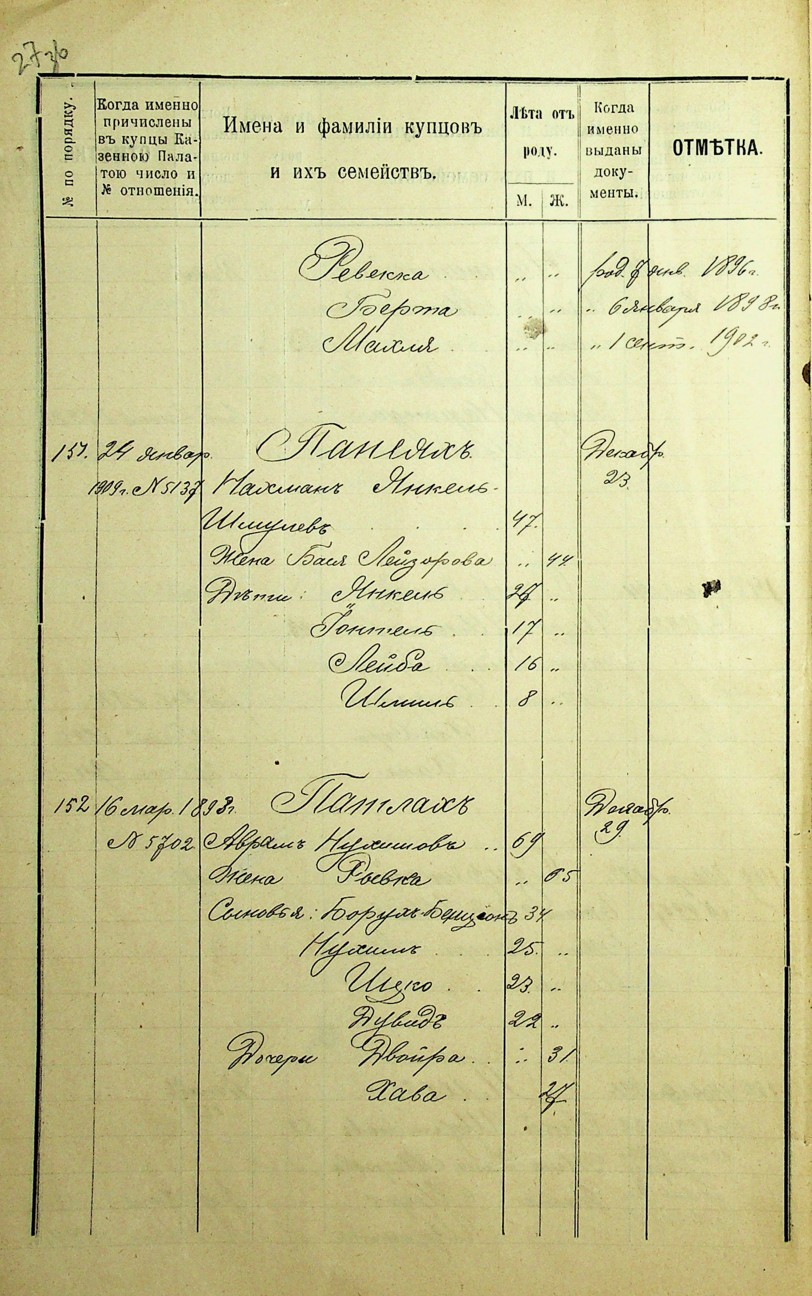 27 об
№ по порядку.
Когда именно
причислены
въ купцы Ка-
зенною Пала-
тою число и
№ отношенія.
Имена и фамиліи купцовъ
и ихъ семействъ.
Лѣта отъ
роду.
М. Ж.
Когда
именно
выданы
доку-
менты.
ОТМѢТКА.
Ревекка . „ „ род. 7 янв. 1896 г.
Берта „ „ „ 6 января 1898 г.
Махля . „ „ „ 1 сент. 1902 г.
151. 24 январ. Панеяхъ. Декабр.
1909 г. № 5137 Нахманъ Янкель- 23.
Шмулевъ . . . . 47.
Жена Бася Лейзорова „ 44
Дѣти: Янкель 27 „
Іонтель . . 17 „
Лейба . . 16 „
Шмиль . 8 „
152 16 мар. 1898 г. Патлахъ Декабр.
№ 5702 Аврамъ Нухимовъ .. 69 29.
Жена Рывка „ 65
Сыновья: Борухъ-Бенціонъ 34
Нухимъ . . 25. „
Шеко . . 23. „
Дувидъ 22 „
Дочери Двойра . . „ 31
Хава . . 27